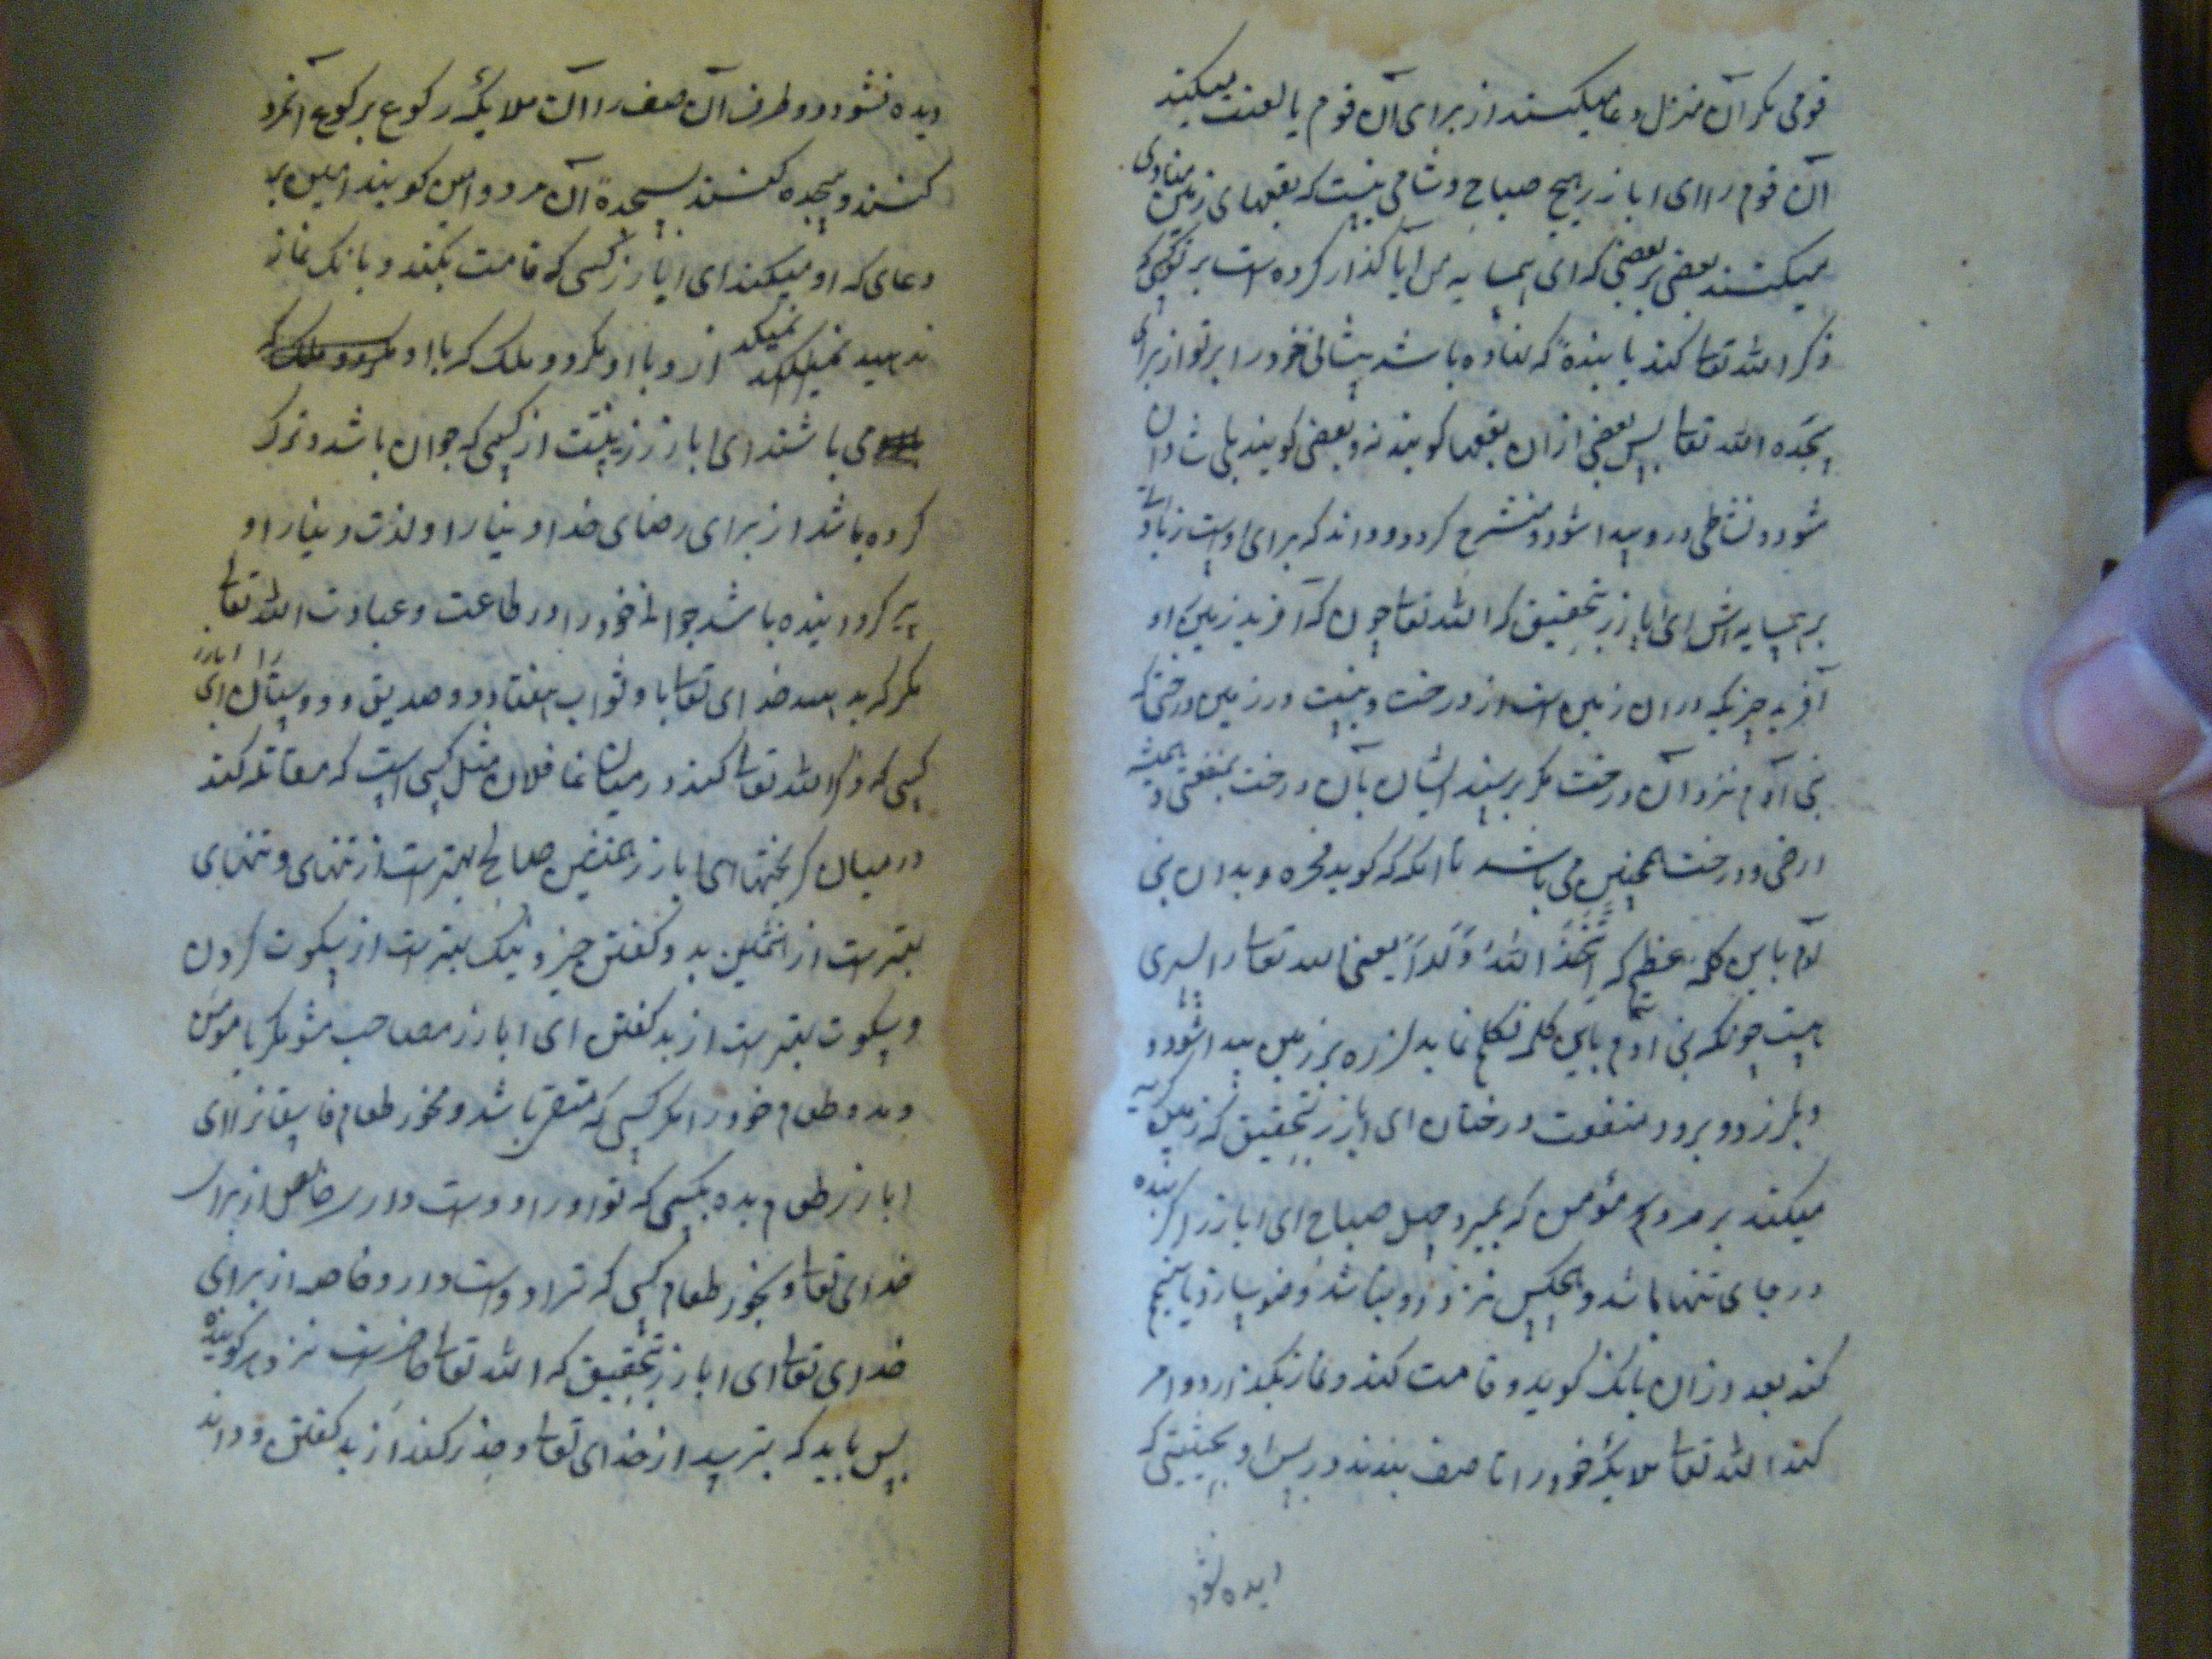 قومی مکر آن منزل دعا میکنند از برای آن قوم یا لعنت میکنند
آن قوم را ای اباذر هیچ صباح و شامی نیست که بقعهای زمین منادی
میکنند بعضی بر بعضی که ای همسایه من ایا کذار کرده است بر تو کسی که
ذکر الله تعا کند یا بندهٔ که نهاده باشد پیشانی خود را بر تو از برای
سجده الله تعا پس بعضی از ان بقعها کویند نه و بعضی کویند بلی شادان
شود و نشاطی در و پیدا شود و منشرح کردد و داند که برای اوست زیادتی
بر همسایه اش ای اباذر تحقیق که الله تعا چون که آفرید زمین او
آفرید چیزیکه در ان زمین است از درخت و نیست در زمین درختی که
بنی آدم نزد آن درخت مکر برسند ایشان بآن درخت بمنفعتی و همیشه
ارض و درخت همچنین می باشد تا انکه که کوید فجره و بدان بنی
آدم باین کلمه عظیم که اتَّخَذَ اللهُ وَلَدًا یعنی الله تعا را پسری
هست چونکه بنی آدم باین کلمه تکلم نماید لرزه بر زمین پیدا شود و
و بلرزد و برود منفعت درختان ای اباذر تحقیق که زمین کریه
میکند بر مردن مؤمن که بمیرد چهل صباح ای اباذر اکر بنده
در جای تنها باشد و هیچکس نزد او نباشد وضو بسازد یا تیمم
کند بعد از ان بانک کوید و قامت کند و نماز بکذارد و امر
کند الله تعا ملایکهٔ خود را تا صف بندند در پس او بحیثیتی که
دیده نشود
دیده نشود دو طرف آن صف را آن ملایکه رکوع برکوع آنمرد
کنند و سجده کنند بسجدهٔ آن مرد و امین کویند امین بر
دعای که او میکند ای اباذر کسی که قامت بکند و بانک نماز
ندهد نمیکند از و با او مکر دو ملک که با او
می باشند ای اباذر نیست از کسی که جوان باشد و ترک
کرده باشد از برای رضای خدا دنیا را و لذت دنیا را و
پیر کردانیده باشد جوانی خود را در طاعت و عبادت الله تعا
مکر که بدهد خدای تعا با و ثواب هفتاد دو صدیق و دوستان را ای اباذر
کسی که ذکر الله تعا کند در میان غافلان مثل کسی است که مقاتله کند
در میان کریختها ای اباذر همنشین صالح بهترست از تنهای و تنهای
بهترست از همنشین بد و کفتن چیز نیک بهترست از سکوت کردن
و سکوت بهترست از بد کفتن ای اباذر مصاحب مشو مکر با مومن
و مده طعام خود را مکر کسی که متقی باشد و مخور طعام فاسقانرا ای
اباذر طعام بده بکسی که تو او را دوست داری خالص از برای
خدای تعا و بخور طعام کسی که ترا دوست دارد خاصه از برای
خدای تعا ای اباذر تحقیق که الله تعا حاضرست نزد هر کوینده
پس باید که بترسد از خدای تعا و حذر کند از بد کفتن و داند